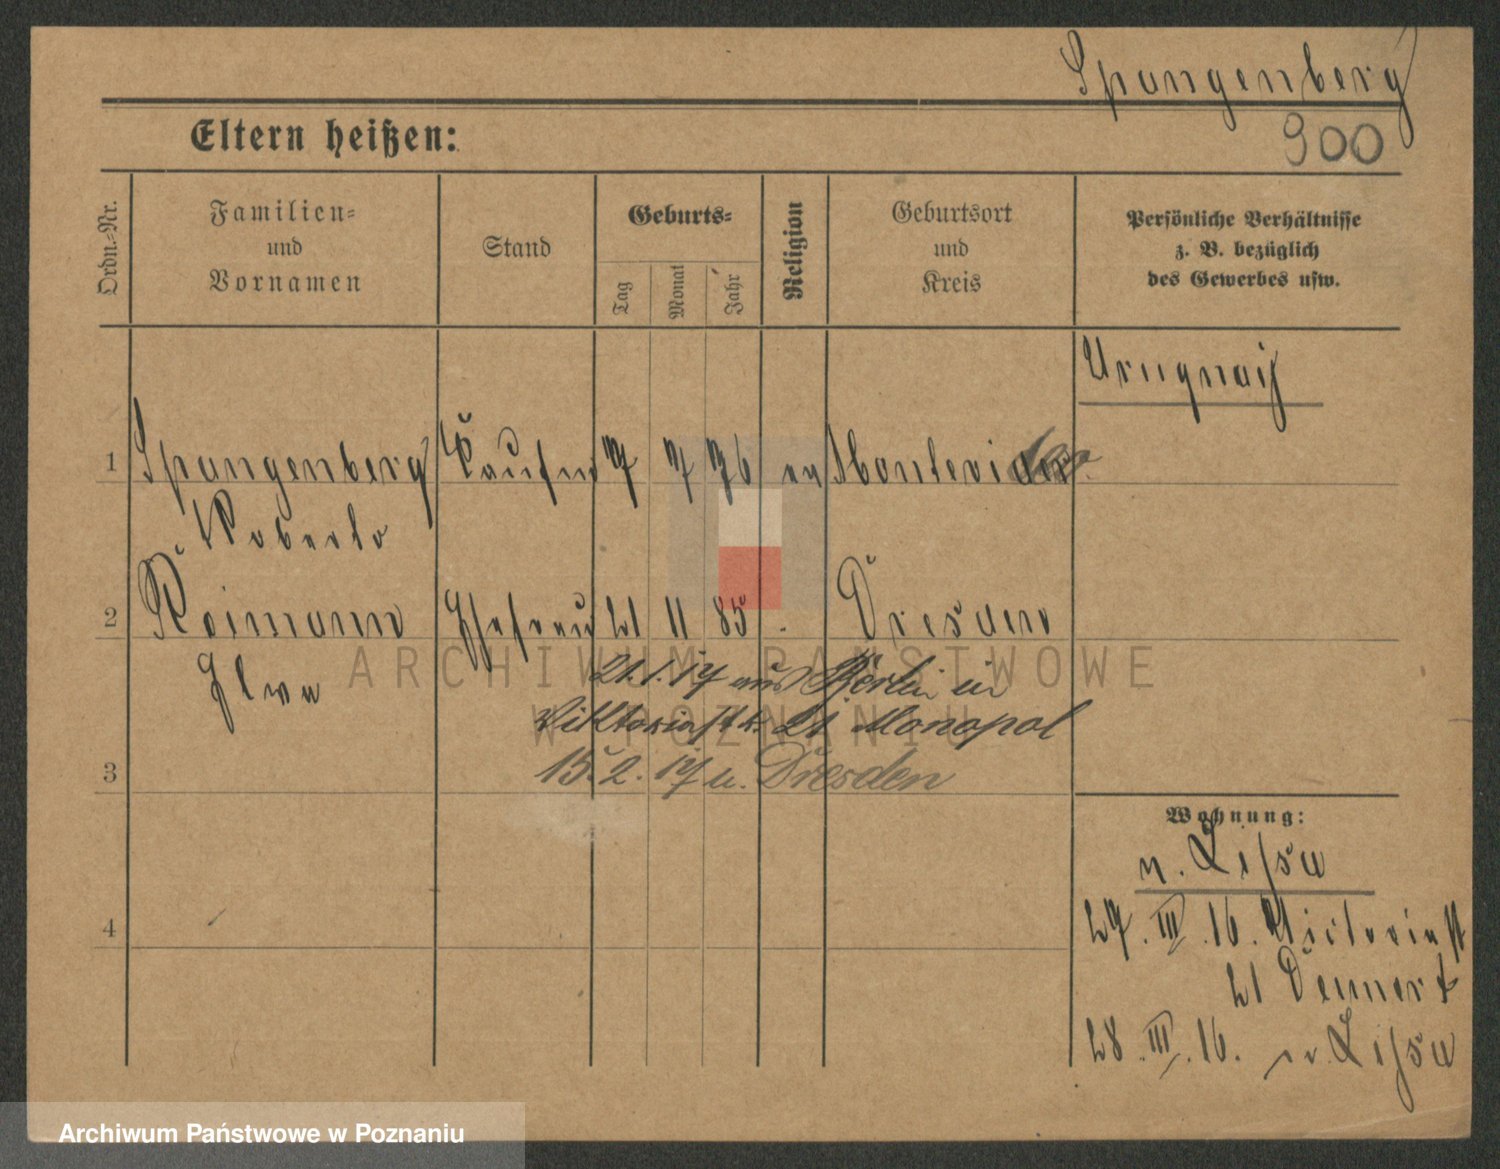 Spangenberg
Eltern heißen:
900
Ordn.-Nr.
Familien-
und
Vornamen
Stand
Geburts-
Tag
Monat
Jahr
Religion
Geburtsort
und
Kreis
Persönliche Verhältnisse
z. B. bezüglich
des Gewerbes usw.
Uruguaÿ
1 Spangenberg Kaufm 7 7 76 ev Montevideo
Roberto
2 Reimann Ehefrau 21 11 85 Dresden
ARCHIWUM PAŃSTWOWE
21.1.17 aus Berlin in
Viktoriastr. 21 Monopol
W POZNANIU
15.2.17 n. Dresden
3
Wohnung:
n. Lissa
27. III. 16. Victoriast
4
21 Dennert
28. III. 16. n. Lissa
Archiwum Państwowe w Poznaniu